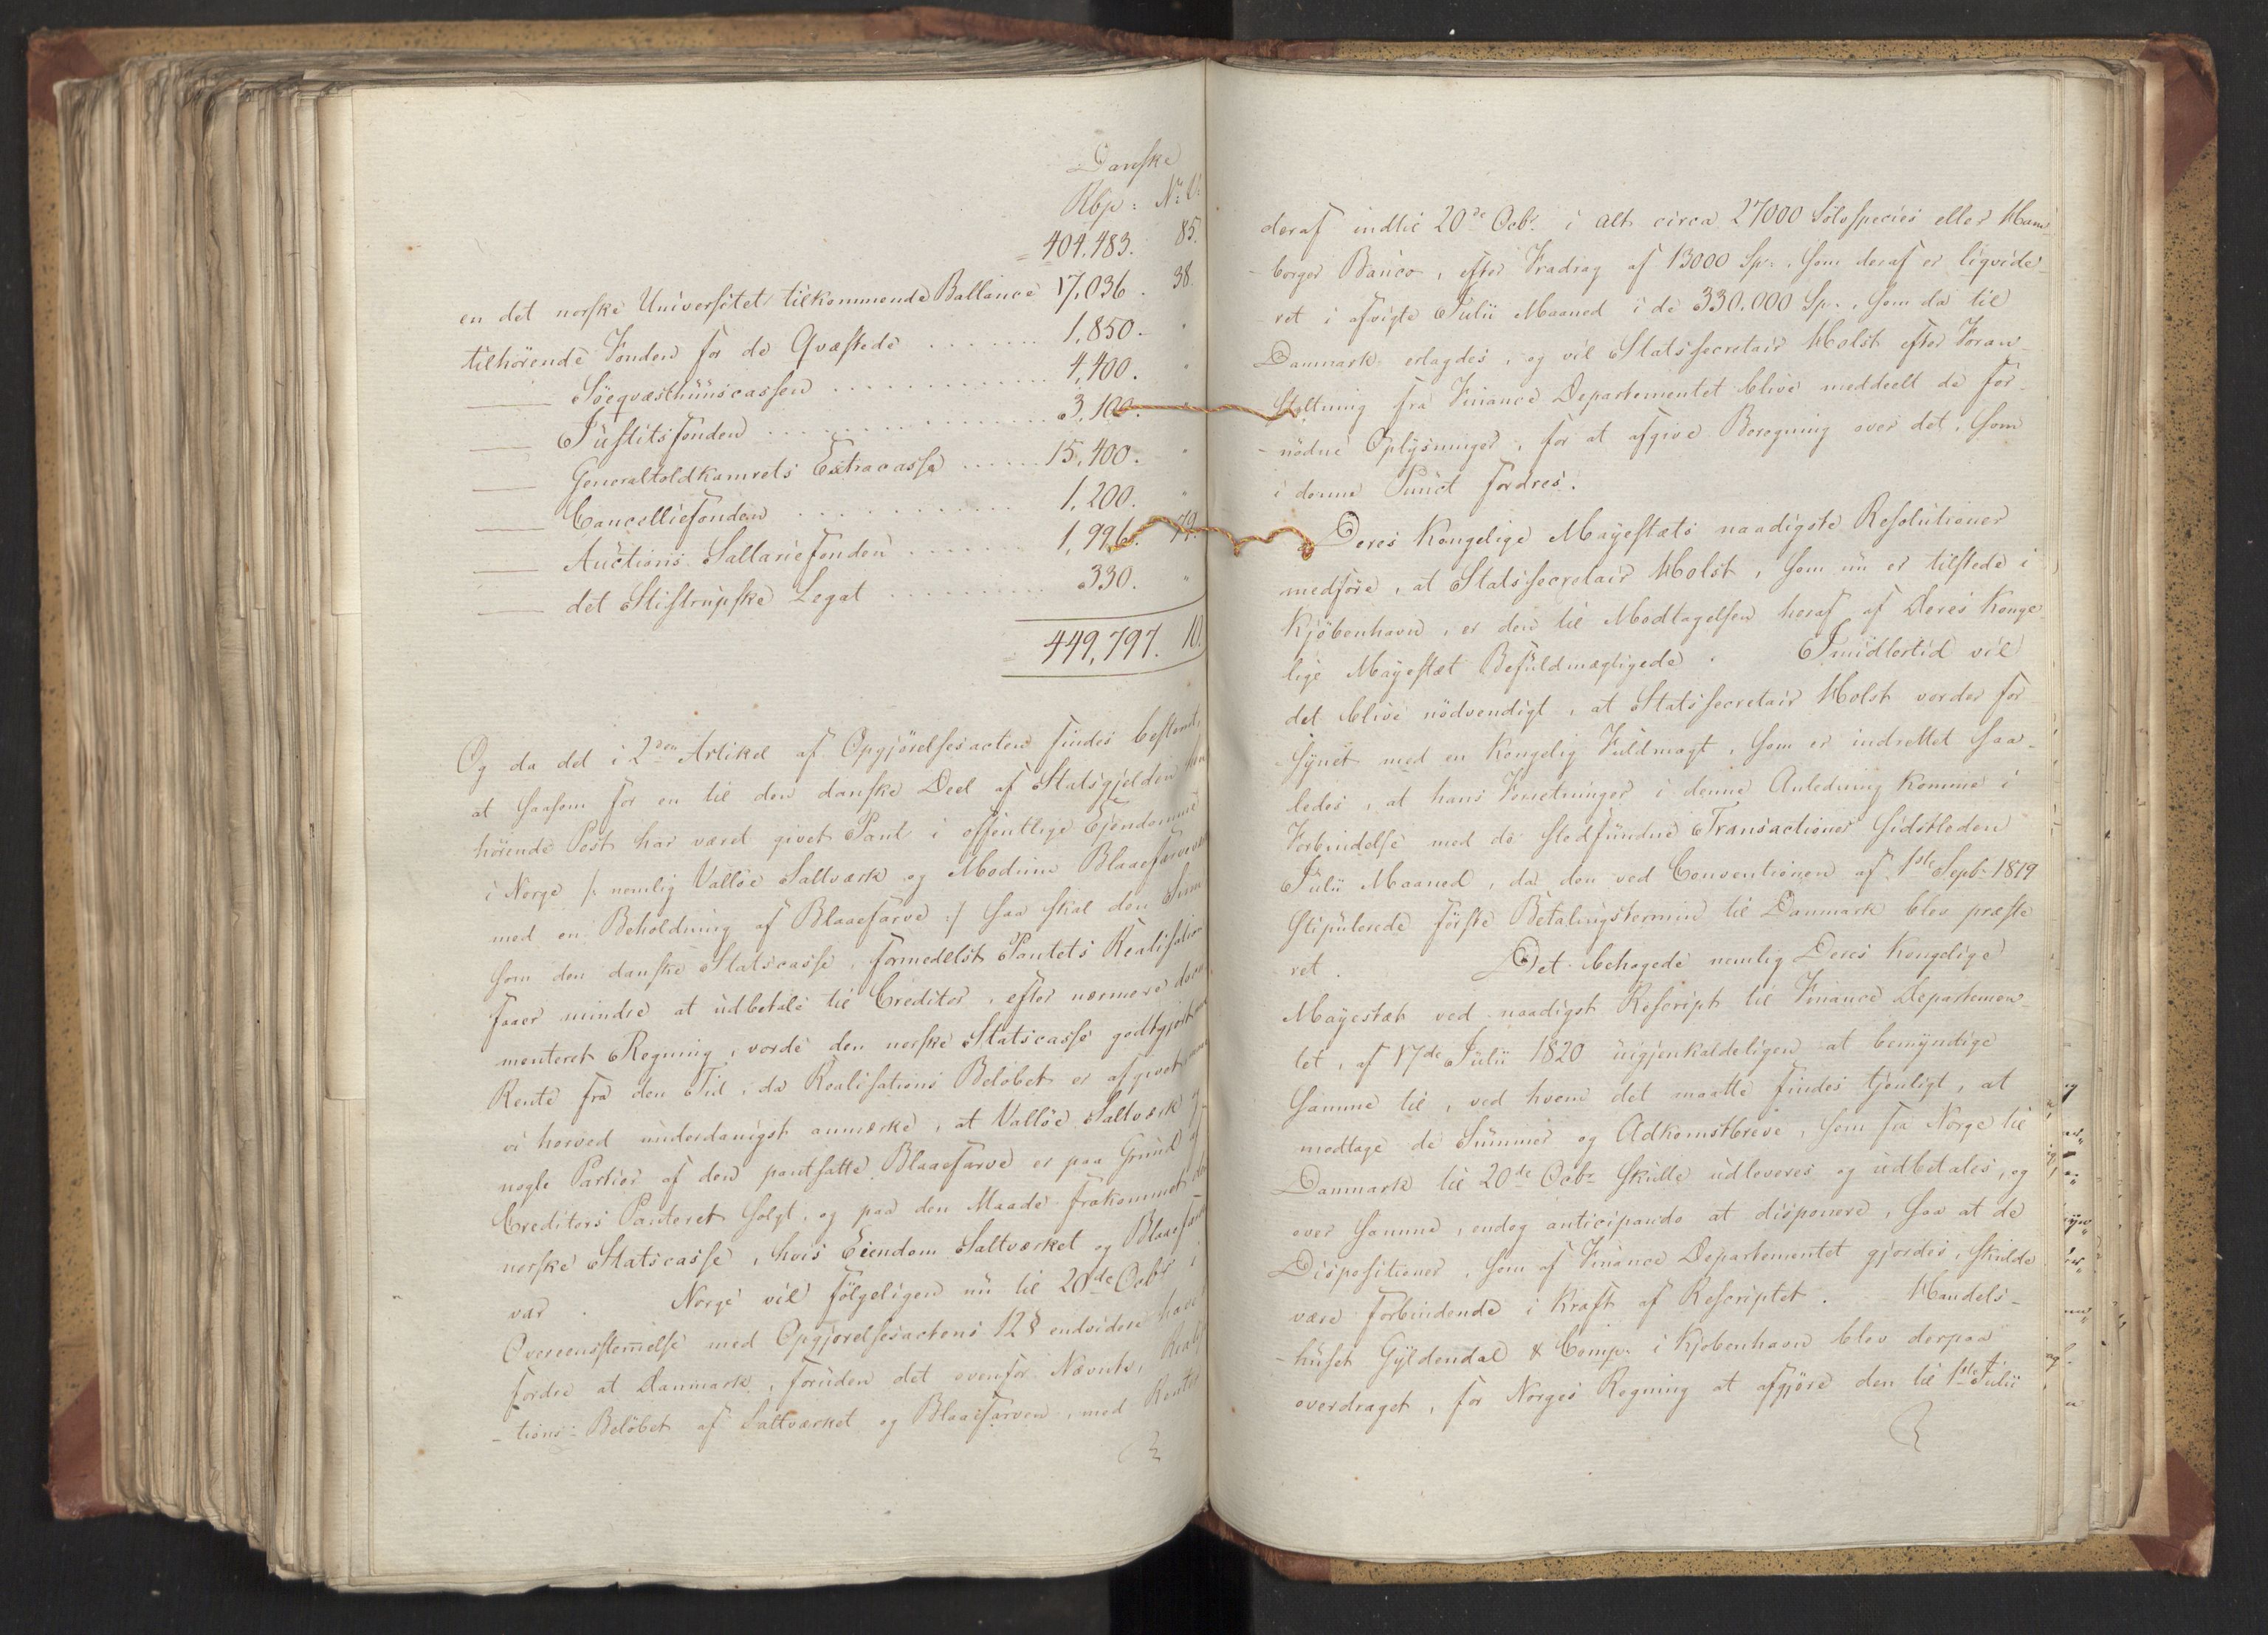 Danske
Rbp: N: V:
= 404,483. 85.
en det norske Universitet tilkommende Ballance 17,036. 38.
tilhörende Fonden for de Qvæstede ....... 1,850. "
—— Söeqvæsthuuscassen ............ 4,400. "
—— Justitsfonden ............... 3,100. "
—— Generaltoldkamrets Extracasse ..... 15,400. "
—— Cancelliefonden ............ 1,200. "
—— Auctions Sallariefonden ....... 1,996. 79.
—— det Stistrupske Legat .......... 330. "
= 449,797. 10.
Og da det i 2den Artikel af Opgjörelsesacten findes bestemt,
at saasom for en til den danske Deel af Statsgjelden hen
hörende Post har været givet Pant i offentlige Ejendomme
i Norge /: nemlig Vallöe Saltværk og Modum Blaaefarveværk
med en Beholdning af Blaaefarve :/ saa skal den Sum
som den danske Statscasse, formedelst Pantets Realisation
faaer mindre at udbetale til Creditor, efter nærmere docu
menteret Regning, vorde den norske Statscasse godtgjort med
Rente fra den Tid, da Realisations Belöbet er afgivet,
vi herved underdanigst anmærke, at Vallöe Saltværk og
nogle Partier af den pantsatte Blaaefarve er paa Grund af
Creditors Panteret solgt, og paa den Maade frakommet den
norske Statscasse, hvis Eiendom Saltværket og Blaaefarven
var . Norge vil fölgeligen nu til 20de Octbr i
Overeensstem̅else med Opgjörelsesactens 12 § endvidere have
fordre at Danmark, foruden det ovenfor Nævnte, Realisa
-tions-Belöbet af Saltværket og Blaaefarven, med Renter
deraf indtil 20de Octbr i alt circa 27000 Sölvspecies eller Ham-
-borger Banco, efter Fradrag af 13000 Sp:, som deraf er liqvide-
-ret i afvigte Julii Maaned i de 330,000 Sp:, som da til
Danmark erlagdes, og vil Statssecretair Holst efter Foran-
-staltning fra Finance Departementet blive meddeelt de for-
-nödne Oplysninger, for at afgive Beregning over det, som
i denne Punct fordres.
Deres Kongelige Mayestæts naadigste Resolutioner
medföre, at Statssecretair Holst, som nu er tilstede i
Kjöbenhavn, er den til Modtagelsen heraf af Deres Konge
lige Mayestæt Befuldmægtigede . Imidlertid vil
det blive nödvendigt, at Statssecretair Holst vorder for
synet med en Kongelig Fuldmagt, som er indrettet saa-
ledes, at hans Forretninger i denne Anledning komme i
Forbindelse med de stedfundne Transactioner sidstleden
Julii Maaned, da den ved Conventionen af 1ste Septbr 1819
stipulerede förste Betalingstermin til Danmark blev præste
ret . Det behagede nemlig Deres Kongelige
Mayestæt ved naadigst Rescript til Finance Departemen-
tet, af 17de Julii 1820 uigjenkaldeligen at bemyndige
samme til, ved hvem det maatte findes tjenligt, at
modtage de Summer og Adkomstbreve, som fra Norge til
Danmark til 20de Octbr skulle udleveres og udbetales, og
over samme, endog anticipando at disponere, saa at de
Dispositioner, som af Finance Departementet gjordes, skulde
være forbindende i Kraft af Rescriptet. Handels-
-huset Gyldendal & Comp: i Kjöbenhavn blev derpaa
overdraget, for Norges Regning at afgjöre den til 1ste Julii